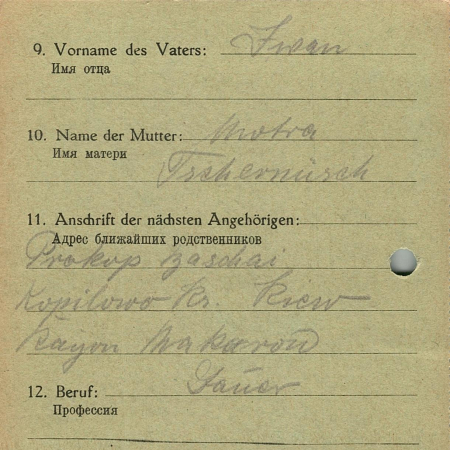 9. Vorname des Vaters: Iwan
Имя отца
10. Name der Mutter: Motra
Имя матери
Tschernüsch
11. Anschrift der nächsten Angehörigen:
Адрес ближайших родственников
Prokop Baschai
Kopilowo Kr. Kiew
Rayon Makarow
12. Beruf: Bauer
Профессия